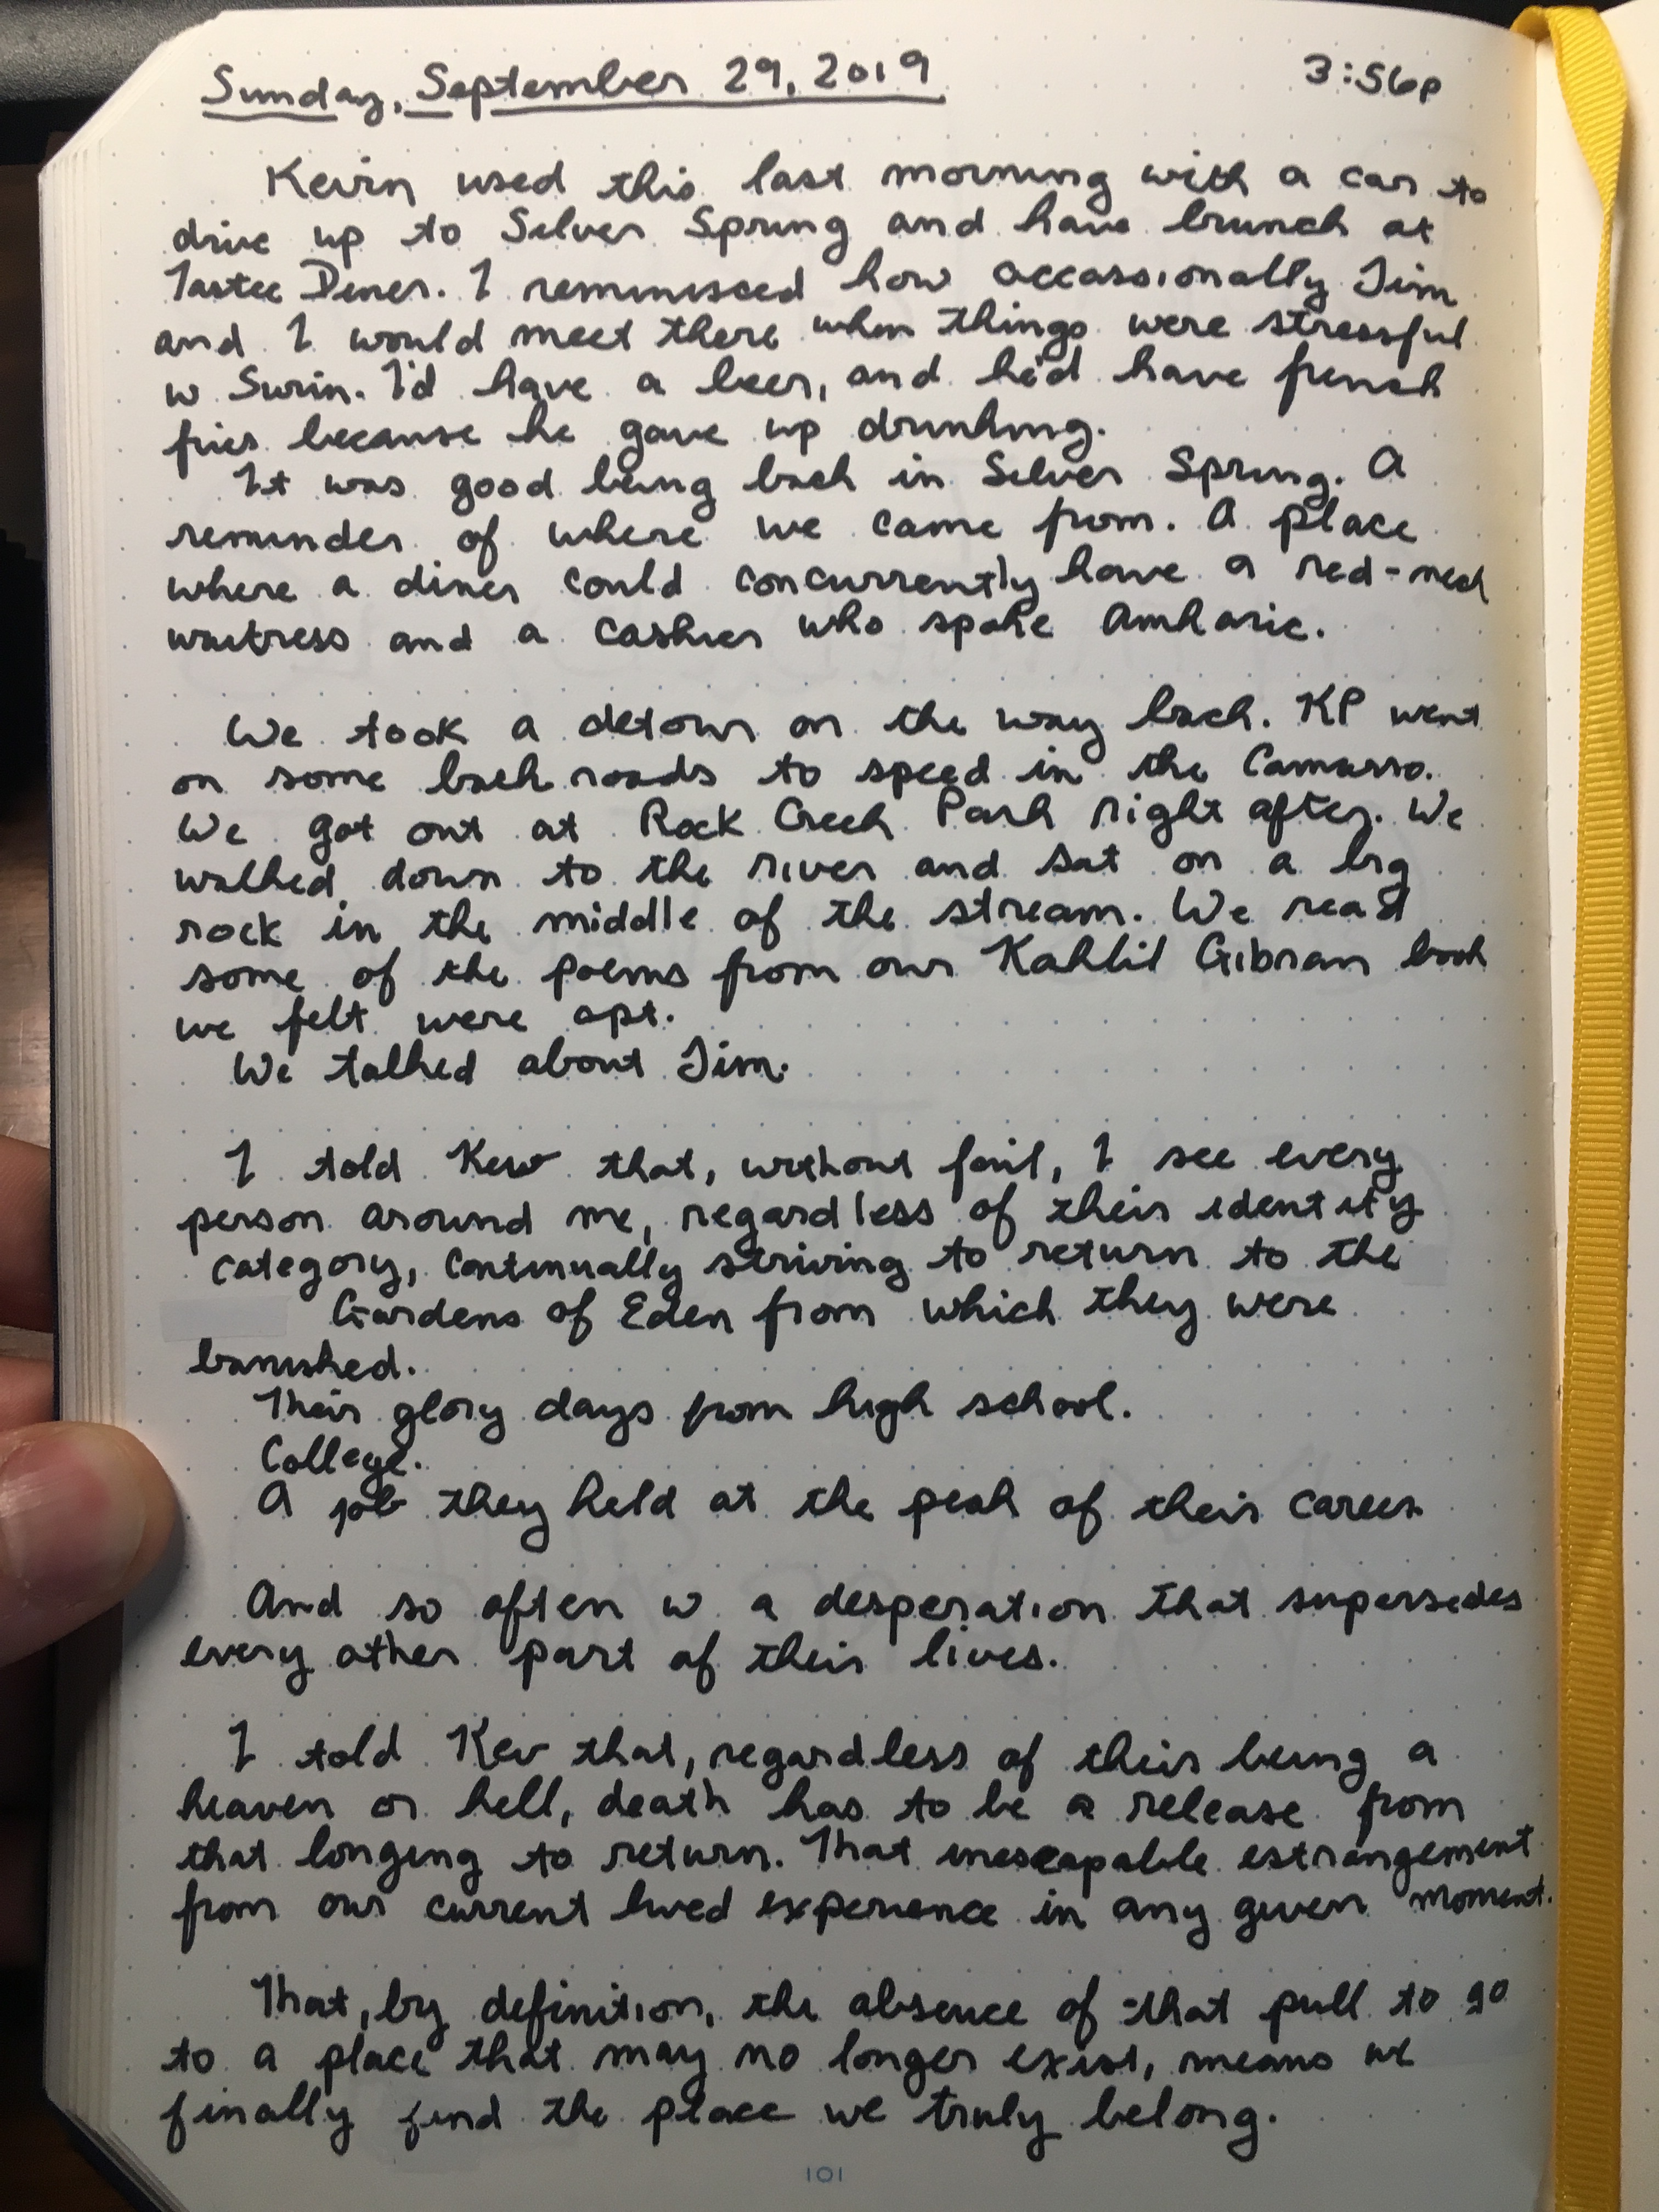 Sunday, September 29, 2019 3:56p
Kevin used this last morning with a car to
drive up to Silver Spring and have brunch at
Tastee Diner. I reminisced how occassionally Jim
and I would meet there when things were stressful
w Swin. I'd have a beer, and he'd have french
fries because he gave up drinking.
It was good being back in Silver Spring. A
reminder of where we came from. A place
where a diner could concurrently have a red-neck
waitress and a cashier who spoke Amharic.
We took a detour on the way back. KP went
on some back roads to speed in the Camarro.
We got out at Rock Creek Park right after. We
walked down to the river and sat on a big
rock in the middle of the stream. We read
some of the poems from our Kahlil Gibran book
we felt were apt.
We talked about Jim.
I told Kev that, without fail, I see every
person around me, regardless of their identity
category, continually striving to return to the
Gardens of Eden from which they were
banished.
Their glory days from high school.
College.
A job they held at the peak of their career
And so often w a desperation that supersedes
every other part of their lives.
I told Kev that, regardless of their being a
heaven or hell, death has to be a release from
that longing to return. That inescapable estrangement
from our current lived experience in any given moment.
That, by definition, the absence of that pull to go
to a place that may no longer exist, means we
finally find the place we truly belong.
101